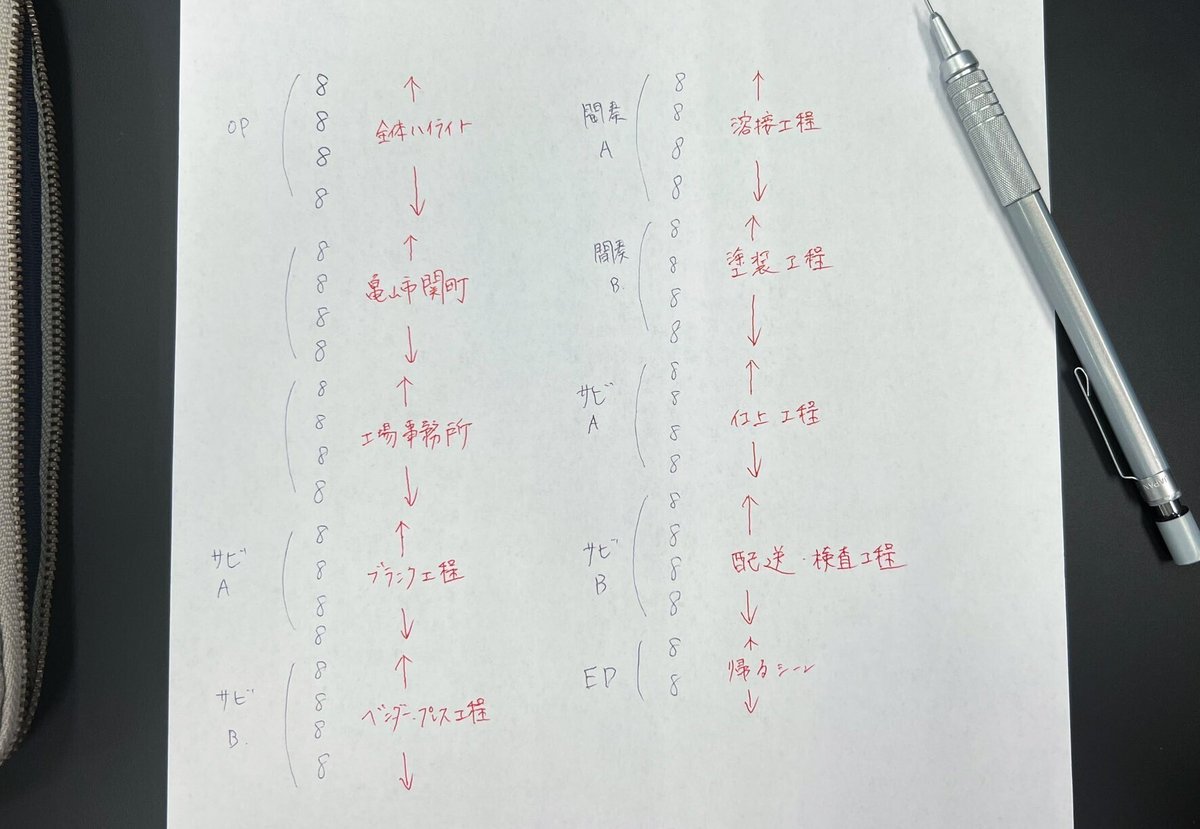 OP
8
8
8
8
全体ハイライト
8
8
8
8
亀山市関町
8
8
8
8
工場事務所
サビ
A
8
8
8
8
ブランク工程
サビ
B.
8
8
8
8
ベンダー・プレス工程
間奏
A
8
8
8
8
溶接工程
間奏
B
8
8
8
8
塗装工程
サビ
A
8
8
8
8
仕上工程
サビ
B
8
8
8
8
配送・検査工程
ED
8
8
帰るシーン
JAPAN